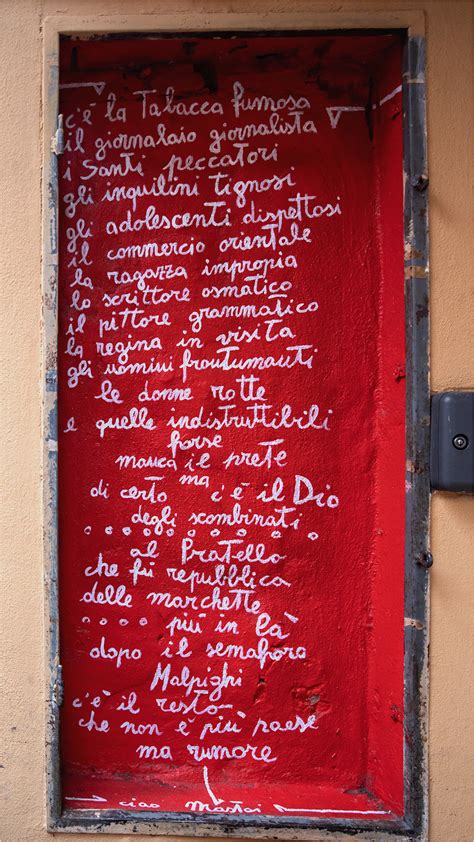 c'è la Tabacca fumosa
il giornalaio giornalista
i Santi peccatori
gli inquilini tignosi
gli adolescenti dispettosi
il commercio orientale
la ragazza impropia
lo scrittore osmatico
il pittore grammatico
la regina in visita
gli uomini frautumauti
le donne rotte
e quelle indistruttibili
forse
manca il prete
ma
di certo c'è il Dio
degli scombinati
al Pratello
che fù repubblica
delle marchette
più in là
dopo il semaforo
Malpighi
c'è il resto
che non è più paese
ma rumore
ciao Mastoi